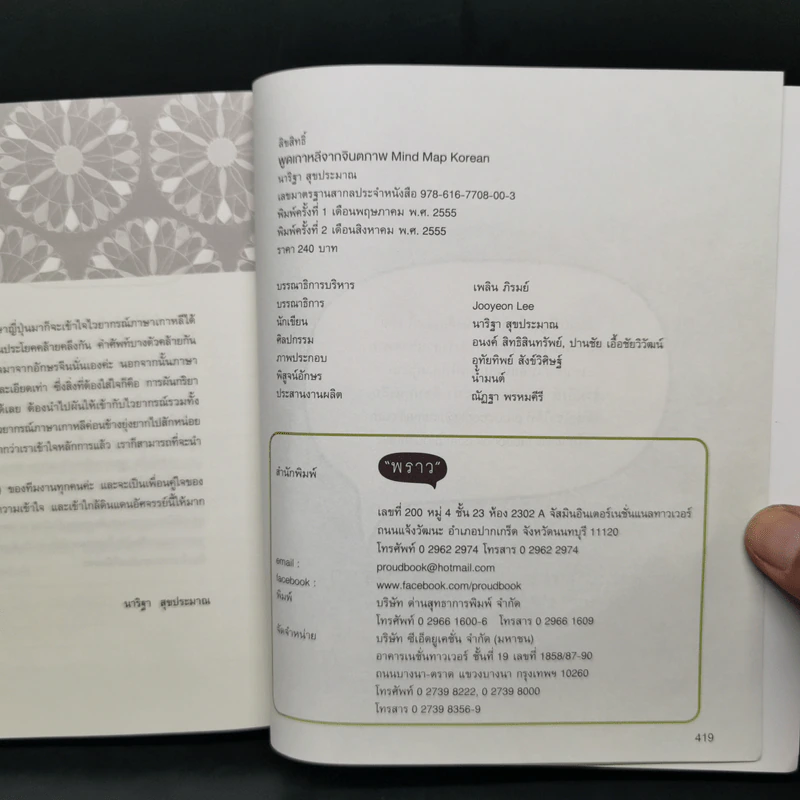 ษาญี่ปุ่นมาก็จะเข้าใจไวยากรณ์ภาษาเกาหลีได้
ประโยคคล้ายคลึงกัน คำศัพท์บางตัวคล้ายกัน
มาจากอักษรจีนนั่นเองค่ะ นอกจากนั้นภาษา
ละเอียดเท่า ซึ่งสิ่งที่ต้องใส่ใจก็คือ การผันกริยา
ได้เลย ต้องนำไปผันให้เข้ากับไวยากรณ์รวมทั้ง
ไวยากรณ์ภาษาเกาหลีค่อนข้างยุ่งยากไปสักหน่อย
กว่าเราเข้าใจหลักการแล้ว เราก็สามารถที่จะนำ
ของทีมงานทุกคนค่ะ และจะเป็นเพื่อนคู่ใจของ
ความเข้าใจ และเข้าใกล้ดินแดนอัศจรรย์นี้ให้มาก
นาริฐา สุขประมาณ
ลิขสิทธิ์
พูดเกาหลีจากจินตภาพ Mind Map Korean
นาริฐา สุขประมาณ
เลขมาตรฐานสากลประจำหนังสือ 978-616-7708-00-3
พิมพ์ครั้งที่ 1 เดือนพฤษภาคม พ.ศ. 2555
พิมพ์ครั้งที่ 2 เดือนสิงหาคม พ.ศ. 2555
ราคา 240 บาท
บรรณาธิการบริหาร เพลิน ภิรมย์
บรรณาธิการ Jooyeon Lee
นักเขียน นาริฐา สุขประมาณ
ศิลปกรรม อนงค์ สิทธิสินทรัพย์, ปานชัย เอื้อชัยวิวัฒน์
ภาพประกอบ อุทัยทิพย์ สังข์วิศิษฐ์
พิสูจน์อักษร น้ำมนต์
ประสานงานผลิต ณัฏฐา พรหมคีรี
สำนักพิมพ์ "พราว"
เลขที่ 200 หมู่ 4 ชั้น 23 ห้อง 2302 A จัสมินอินเตอร์เนชั่นแนลทาวเวอร์
ถนนแจ้งวัฒนะ อำเภอปากเกร็ด จังหวัดนนทบุรี 11120
โทรศัพท์ 0 2962 2974 โทรสาร 0 2962 2974
email : proudbook@hotmail.com
facebook : www.facebook.com/proudbook
พิมพ์ บริษัท ด่านสุทธาการพิมพ์ จำกัด
โทรศัพท์ 0 2966 1600-6 โทรสาร 0 2966 1609
จัดจำหน่าย บริษัท ซีเอ็ดยูเคชั่น จำกัด (มหาชน)
อาคารเนชั่นทาวเวอร์ ชั้นที่ 19 เลขที่ 1858/87-90
ถนนบางนา-ตราด แขวงบางนา กรุงเทพฯ 10260
โทรศัพท์ 0 2739 8222, 0 2739 8000
โทรสาร 0 2739 8356-9
419